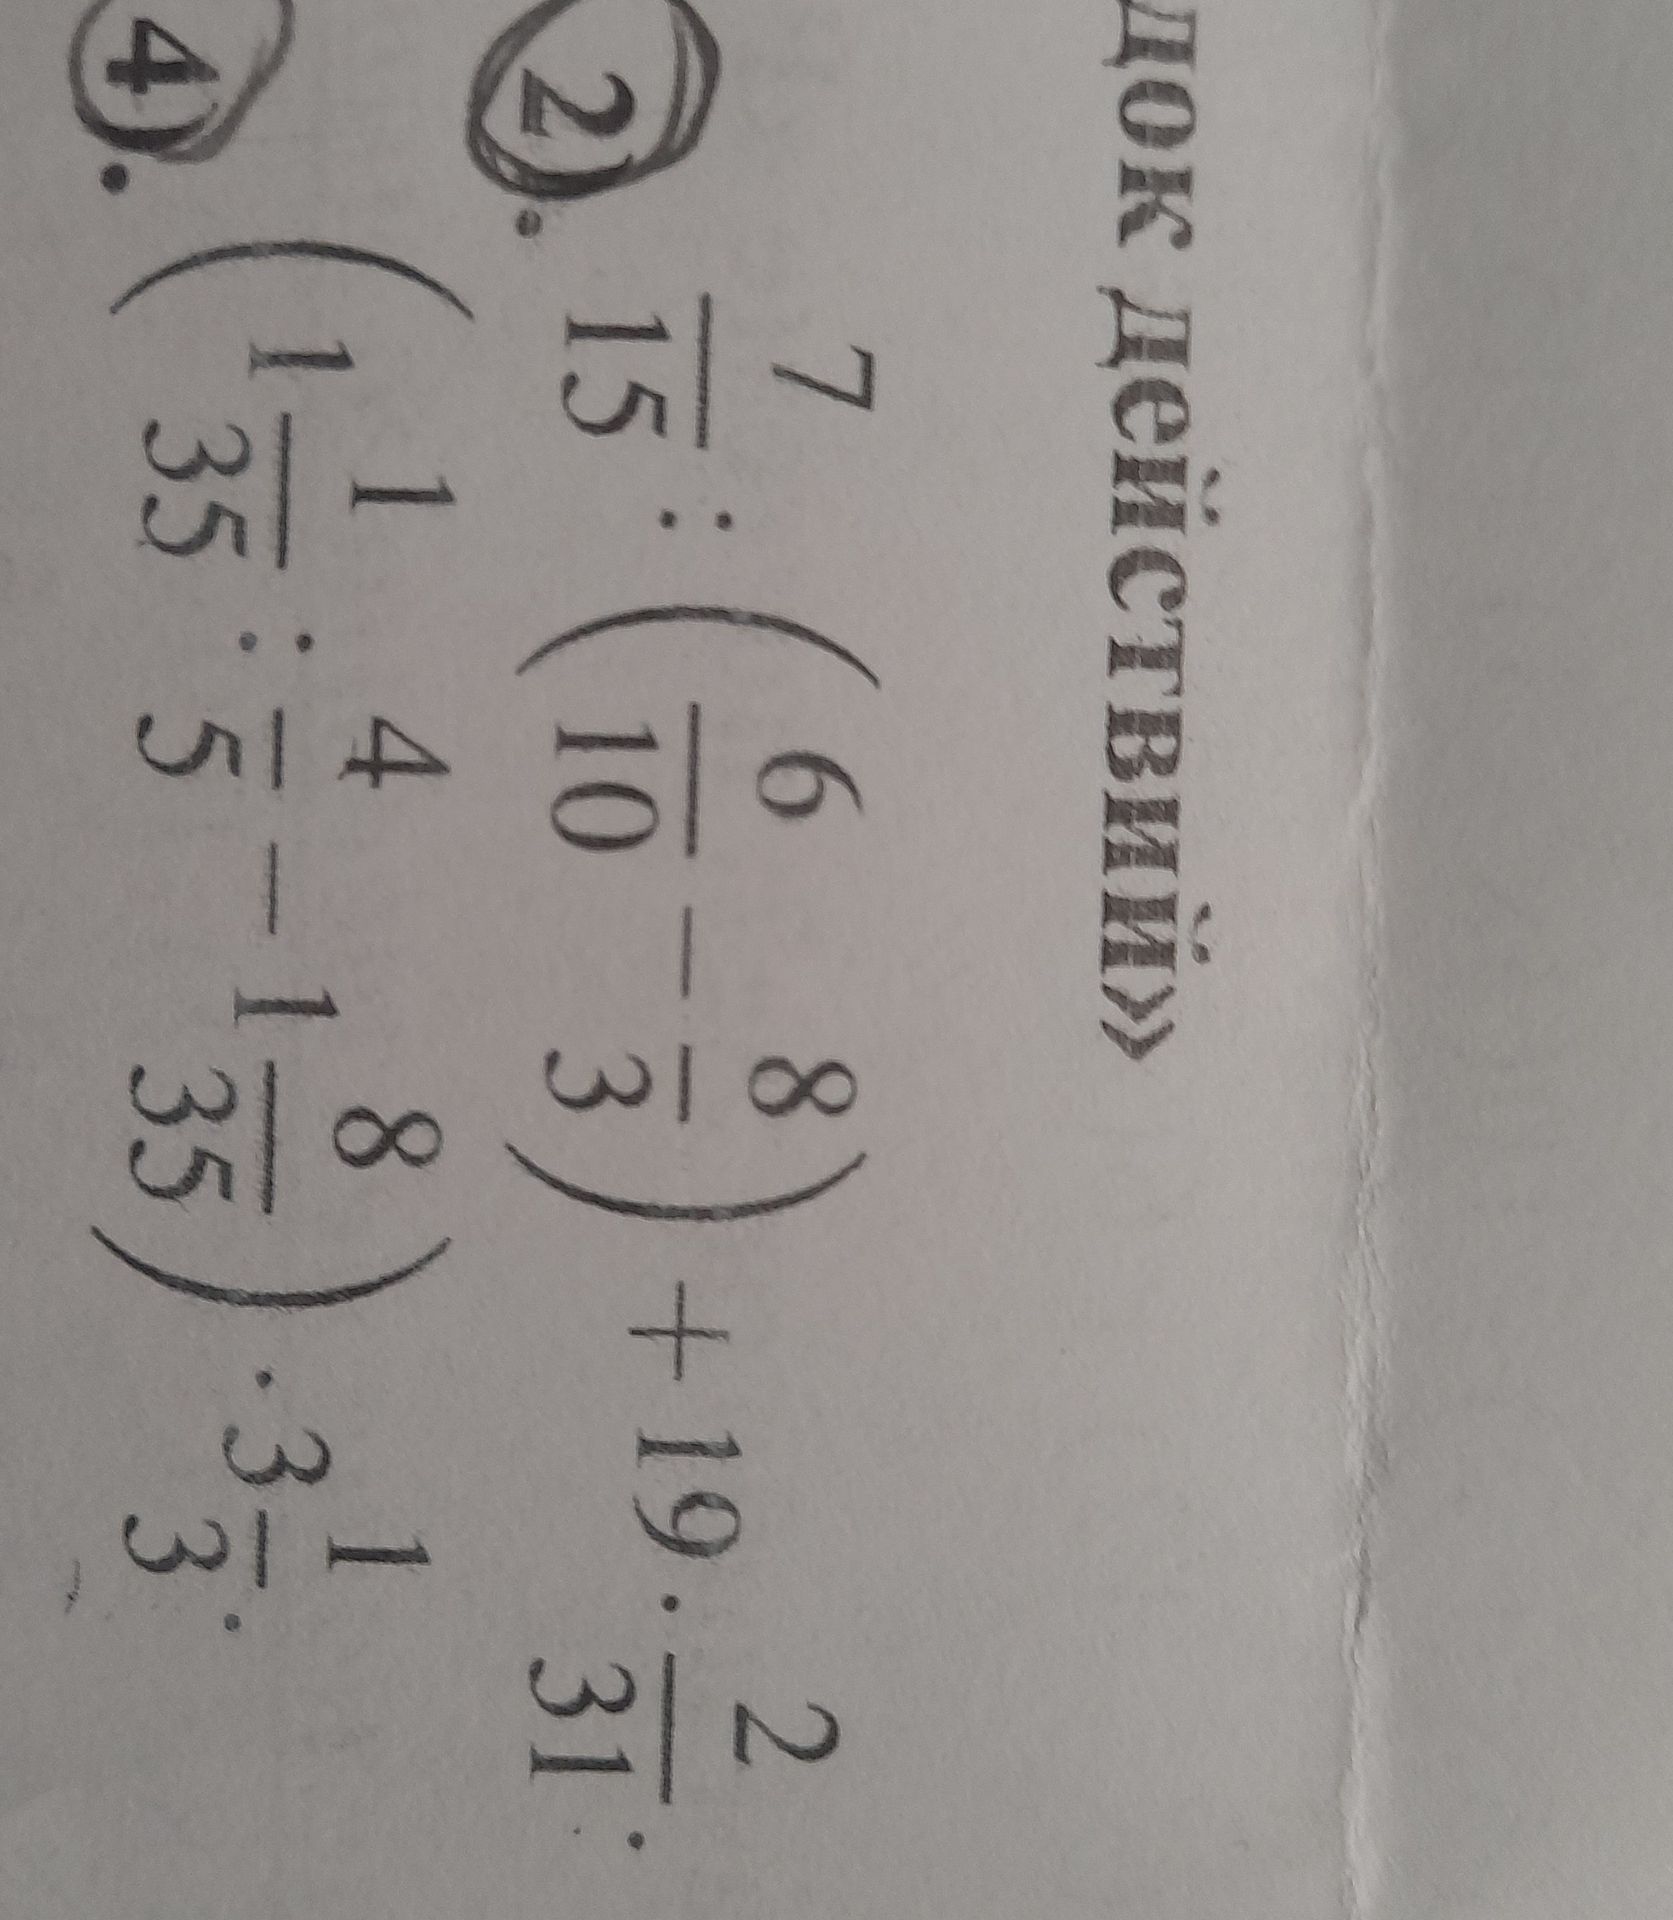 док действий»
2). 7/15 : (6/10 − 8/3) + 19 · 2/31.
4). (1 1/35 : 4/5 − 1 8/35) · 3 1/3.